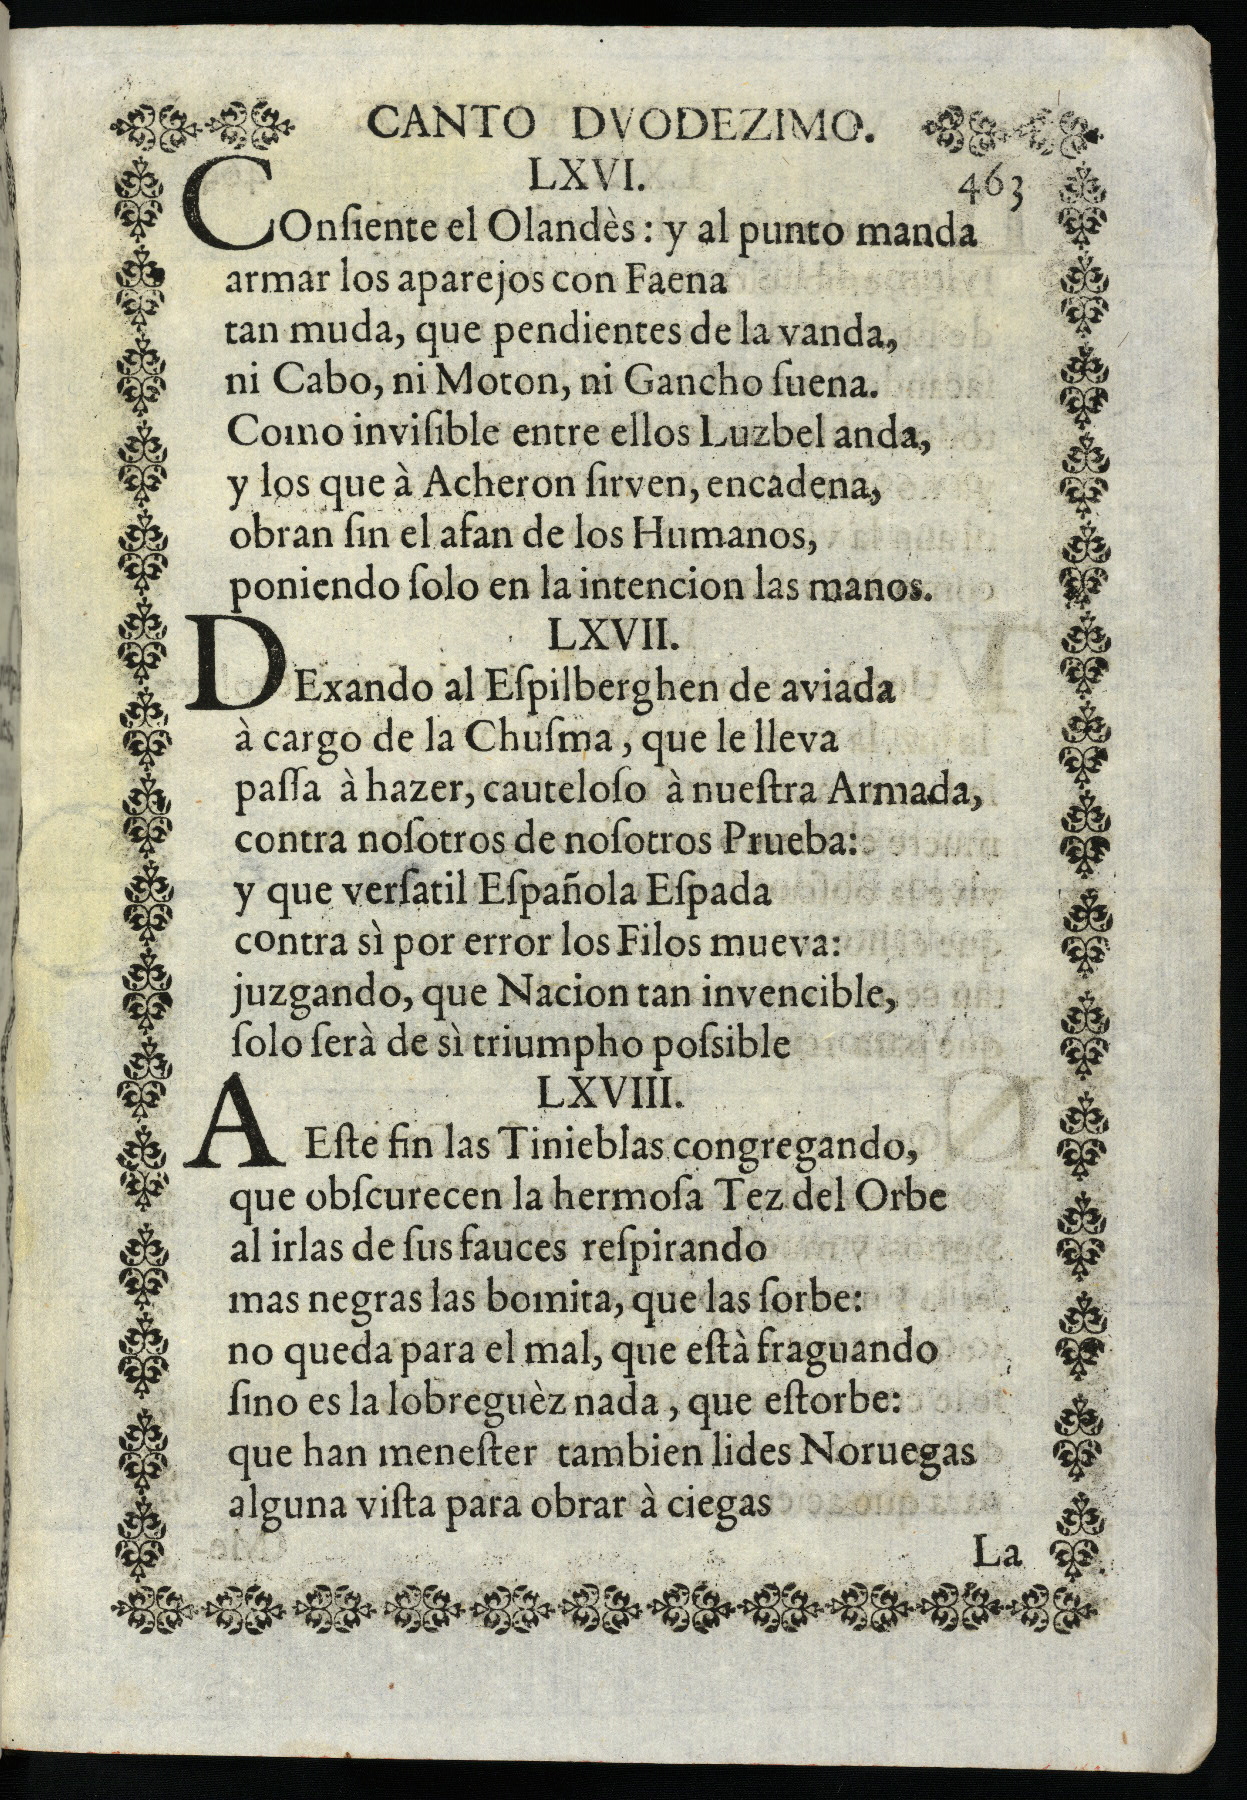 CANTO DVODEZIMO.
LXVI. 463
COnſiente el Olandès: y al punto manda
armar los aparejos con Faena
tan muda, que pendientes de la vanda,
ni Cabo, ni Moton, ni Gancho ſuena.
Como inviſible entre ellos Luzbel anda,
y los que à Acheron ſirven, encadena,
obran ſin el afan de los Humanos,
poniendo ſolo en la intencion las manos.
LXVII.
DExando al Eſpilberghen de aviada
à cargo de la Chuſma, que le lleva
paſſa à hazer, cauteloſo à nueſtra Armada,
contra noſotros de noſotros Prueba:
y que verſatil Eſpañola Eſpada
contra sì por error los Filos mueva:
juzgando, que Nacion tan invencible,
ſolo ſerà de sì triumpho poſsible
LXVIII.
A Eſte fin las Tinieblas congregando,
que obſcurecen la hermoſa Tez del Orbe
al irlas de ſus fauces reſpirando
mas negras las bomita, que las ſorbe:
no queda para el mal, que eſtà fraguando
ſino es la lobreguèz nada, que eſtorbe:
que han meneſter tambien lides Noruegas
alguna viſta para obrar à ciegas
La